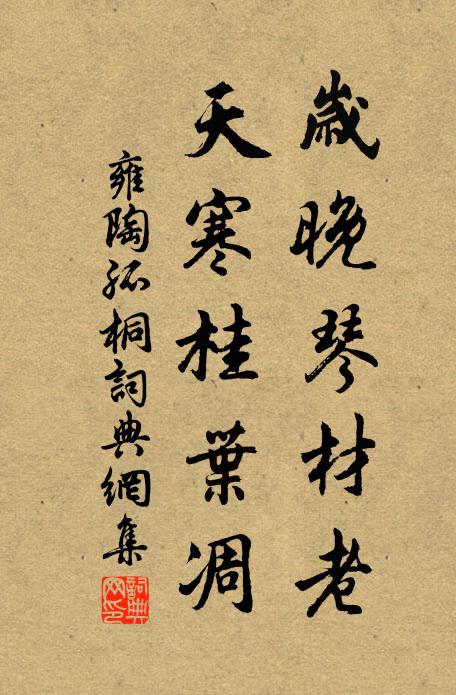 歲晚琴材老
天寒桂葉凋
雍陶孤桐詞典網集
詞典
网印